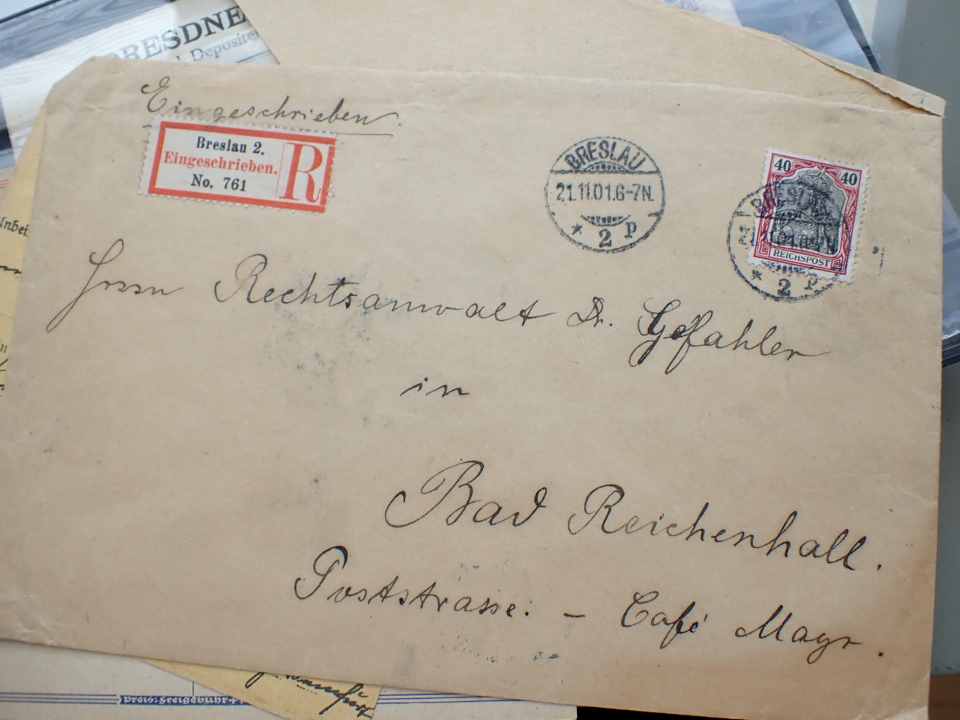 DRESDNE
Deposite
Eingeschrieben.
Breslau 2.
Eingeschrieben.
No. 761
R
BRESLAU
21.11.01.6-7N.
* 2 P
40 40
REICHSPOST
BRESLAU
* 2 P
Herrn Rechtsanwalt Dr. Gefahler
in
Bad Reichenhall.
Poststrasse. – Café Mayr.
Preis: Freigebühr